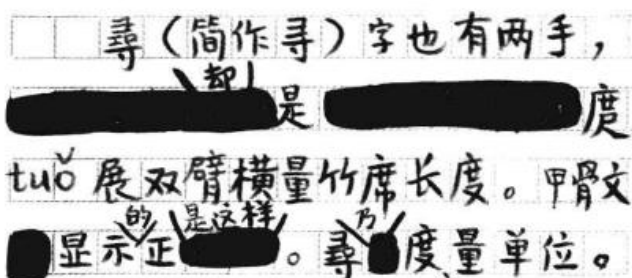 尋（简作寻）字也有两手，
却是度
tuǒ 展双臂横量竹席长度。甲骨文
显示的正是这样。尋乃度量单位。